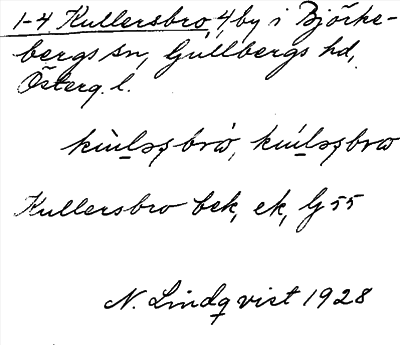 1-4 Kullersbro, 4, by i Björke-
bergs sn, Gullbergs hd,
Österg. l.
Kullersbro bek, ek, G 55
N. Lindqvist 1928